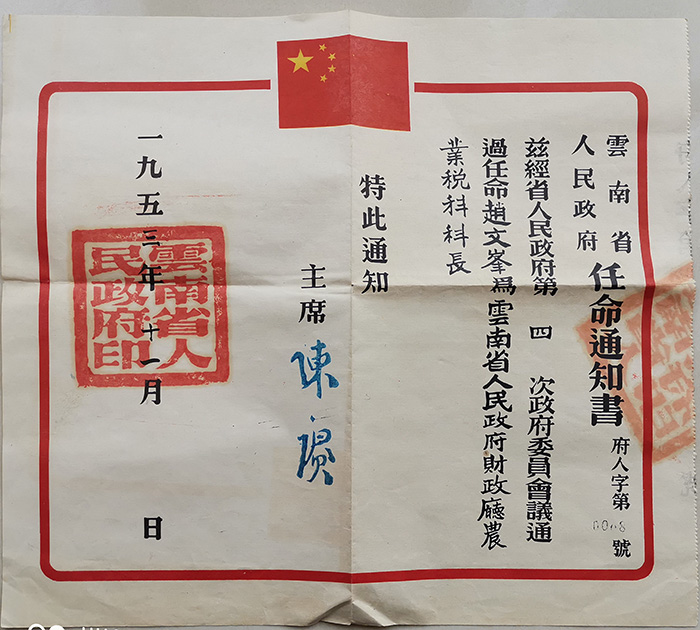 雲南省
人民政府
任命通知書
府人字第0008號
茲經省人民政府第 四 次政府委員會議通
過任命趙文峯爲雲南省人民政府財政廳農
業税科科長
特此通知
主席 陳賡
一九五三年十一月 日
雲南省人
民政府印